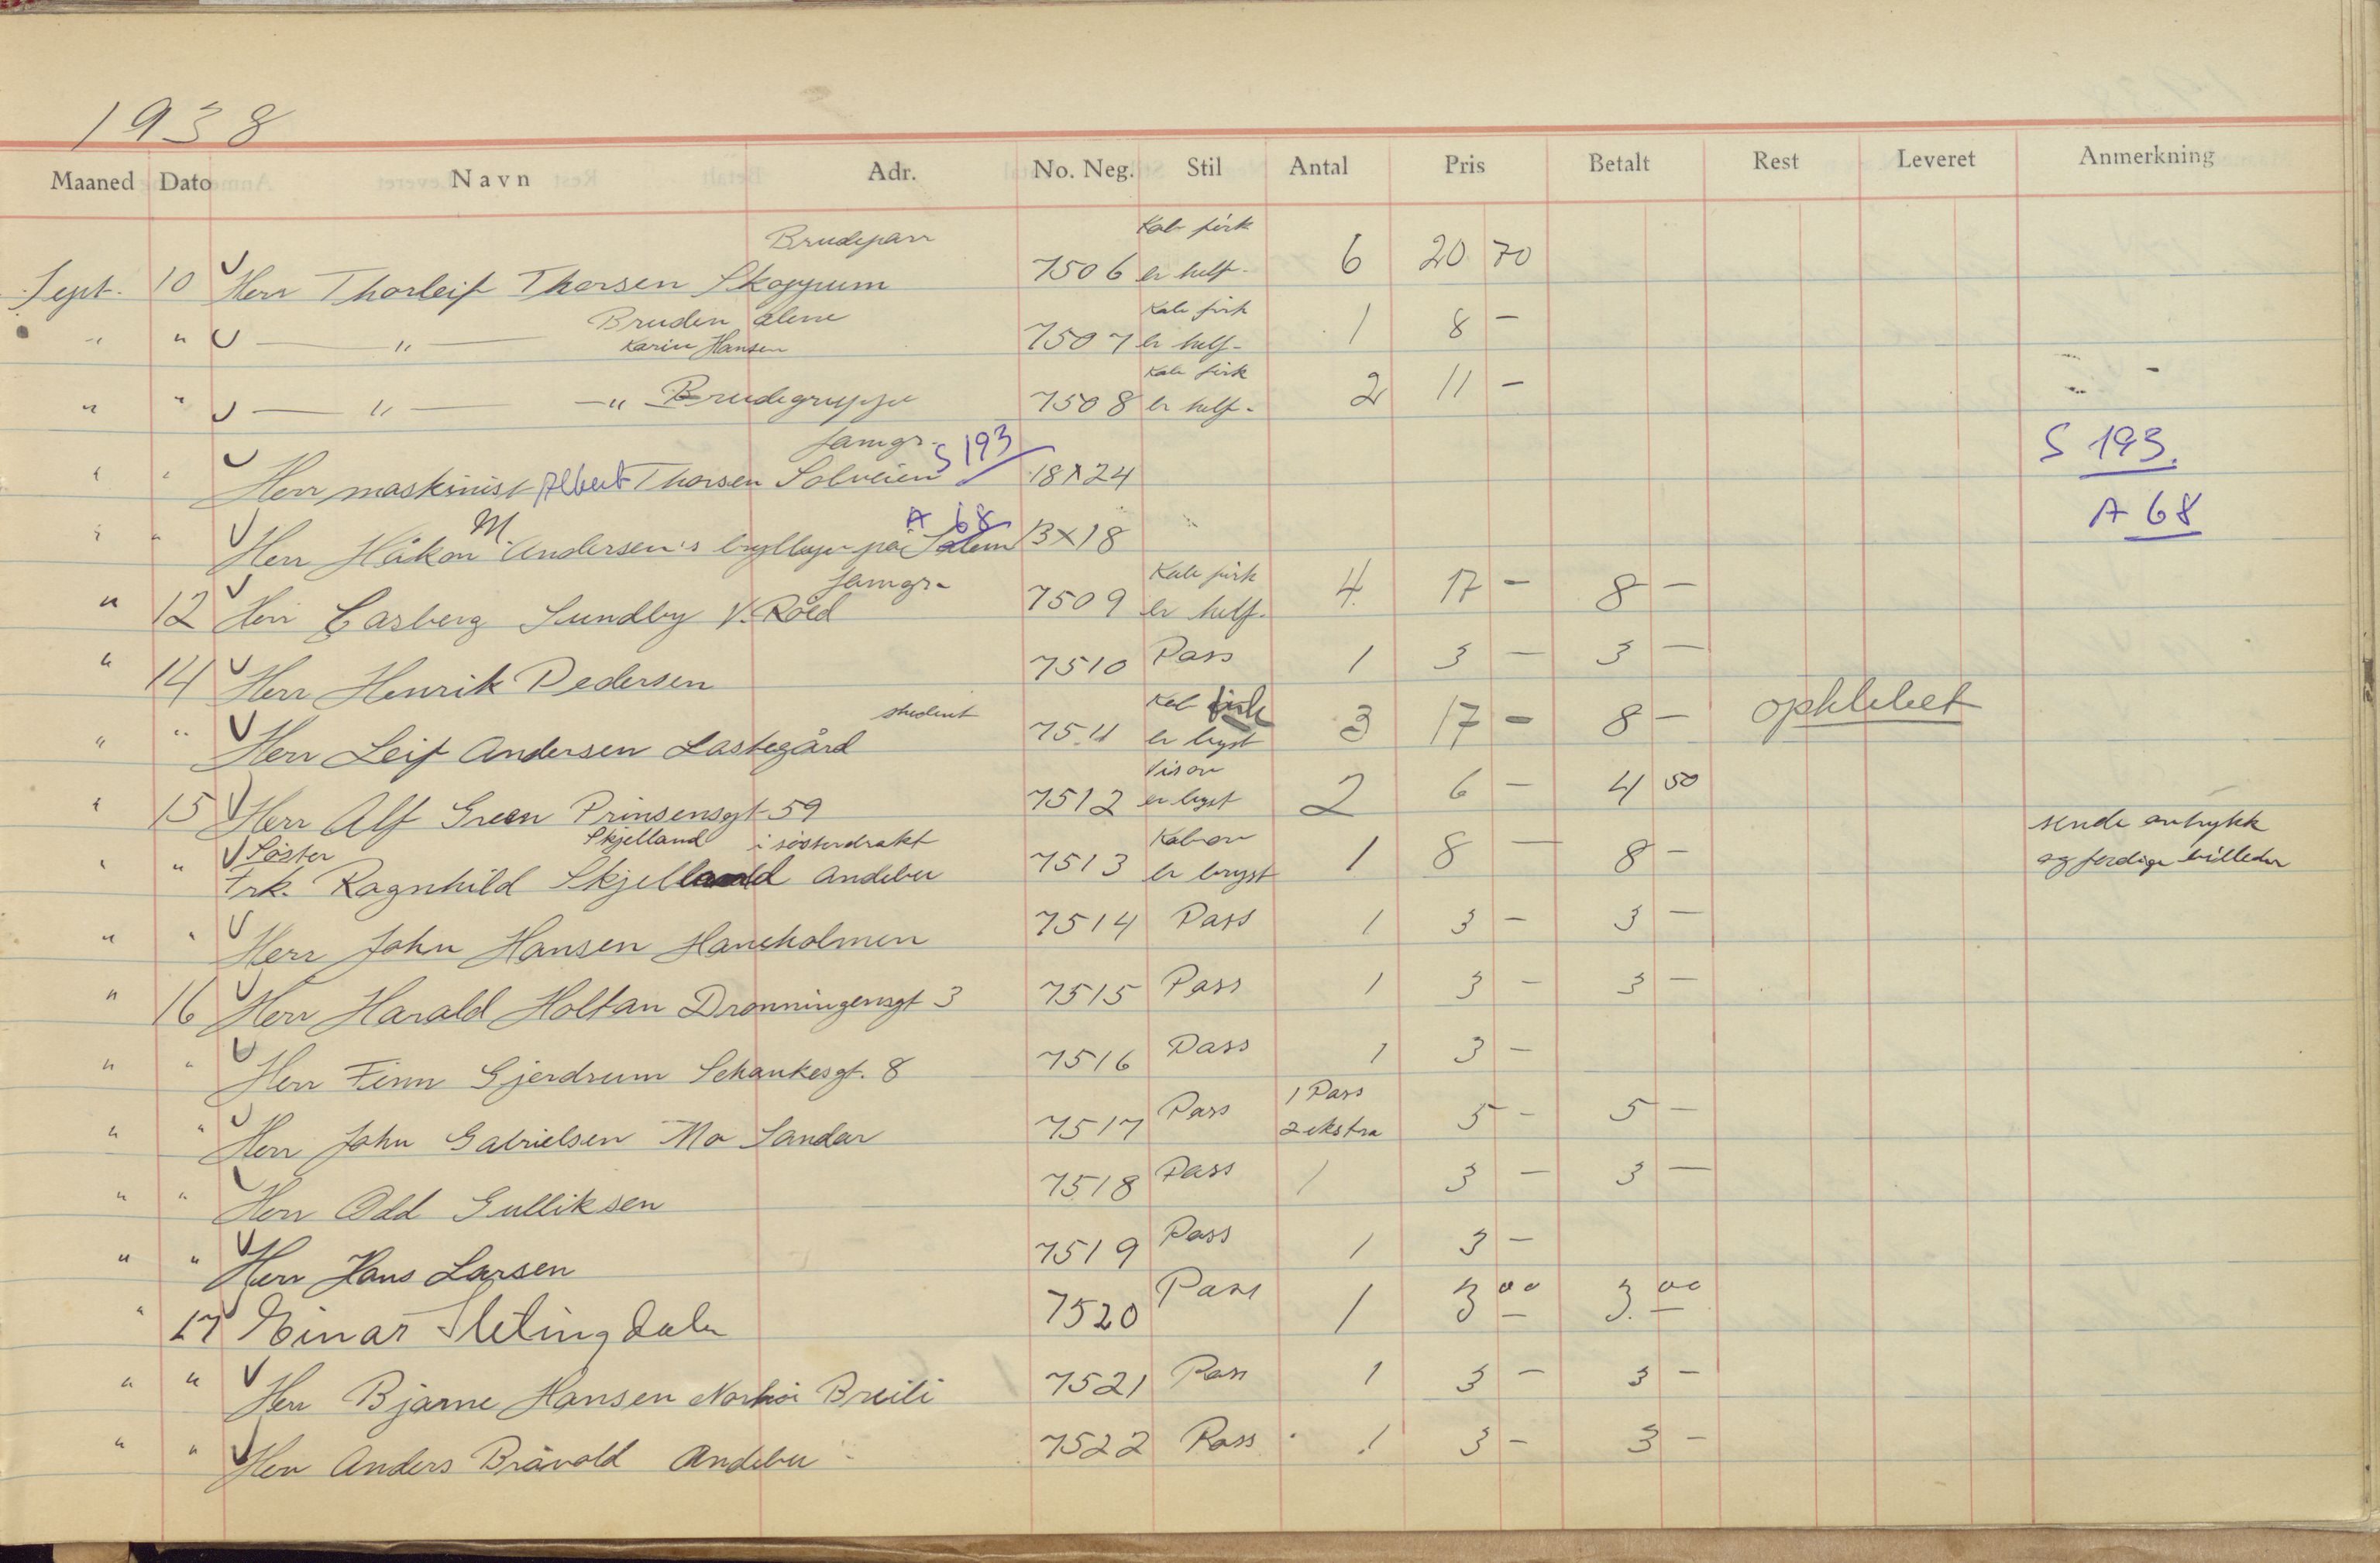 1938
Maaned Dato Navn Adr. No. Neg. Stil Antal Pris Betalt Rest Leveret Anmerkning
Brudeparr Kab firk
Sept. 10 Herr Thorleif Thorsen Skoppum 7506 er helf. 6 20 70
Bruden alene Kab firk
" " — " — Karin Hansen 7507 er helf. 1 8 —
Kab firk
" " — " — — " Brudegruppe 7508 er helf. 2 11 —
famgr. S 193 S 193.
" " Herr maskinist Albert Thorsen Solveien 18X24
M. A 68 A 68
" " Herr Håkon Andersen's bryllup på Salem 13X18
famgr. Kab firk
" 12 Herr Casberg Sundby V. Roed 7509 er helf. 4 17 — 8 —
" 14 Herr Henrik Pedersen 7510 Pass 1 3 — 3 —
student Kab firk
" " Herr Leif Andersen Lastegård 7511 er bryst 3 17 — 8 — opklebet
Vis ov
" 15 Herr Alf Green Prinsensgt 59 7512 er bryst 2 6 — 4 50
Söster Skjelland i sösterdrakt Kab ov sende avtrykk
" " Frk. Ragnhild Skjelland Andebu 7513 er bryst 1 8 — 8 — og ferdige billeder
" " Herr John Hansen Haneholmen 7514 Pass 1 3 — 3 —
" 16 Herr Harald Holtan Dronningensgt 3 7515 Pass 1 3 — 3 —
" " Herr Finn Gjerdrum Schankesgt. 8 7516 Pass 1 3 —
1 Pass
" " Herr John Gabrielsen Mo Sandar 7517 Pass 2 ekstra 5 — 5 —
" " Herr Odd Gulliksen 7518 Pass 1 3 — 3 —
" " Herr Hans Larsen 7519 Pass 1 3 —
" 17 Einar 7520 Pass 1 3 00 3. 00
" " Herr Bjarne Hansen Breili 7521 Pass 1 3 — 3 —
" " Herr Anders Bråvold Andebu 7522 Pass 1 3 — 3 —